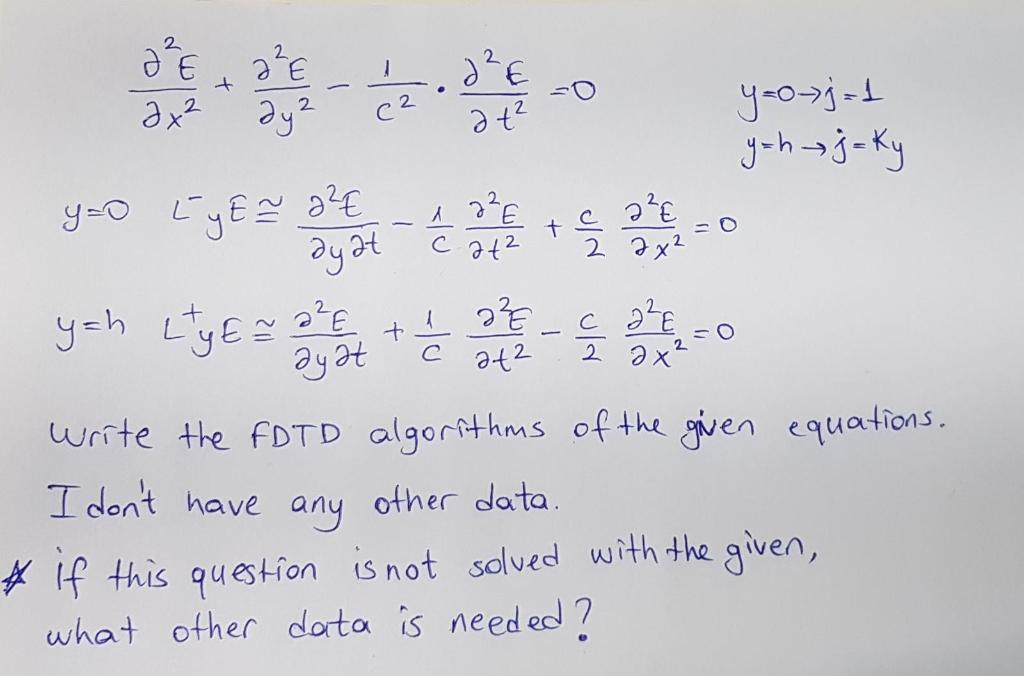 ∂²E/∂x² + ∂²E/∂y² - 1/c² . ∂²E/∂t² = 0
y=0→j=1
y=h→j=Ky
y=0 L⁻yE ≅ ∂²E/∂y∂t - 1/c ∂²E/∂t² + c/2 ∂²E/∂x² = 0
y=h L⁺yE ≅ ∂²E/∂y∂t + 1/c ∂²E/∂t² - c/2 ∂²E/∂x² = 0
Write the FDTD algorithms of the given equations.
I don't have any other data.
* if this question is not solved with the given,
what other data is needed?